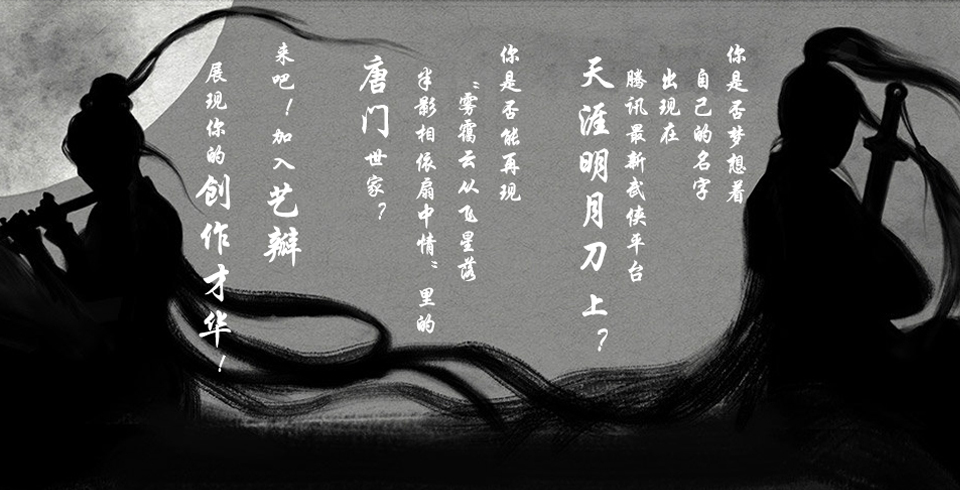 你是否梦想着
自己的名字
出现在
腾讯最新武侠平台
天涯明月刀上?
你是否能再现
“雾霭云从飞星落
半影相依扇中情”里的
唐门世家?
来吧!加入艺瓣
展现你的创作才华!